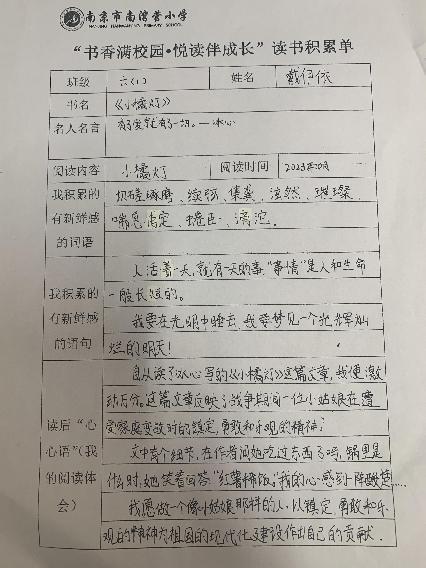 南京市南湾营小学
NANJING NANWANYING PRIMARY SCHOOL
“书香满校园•悦读伴成长”读书积累单
班级 六(1) 姓名 戴仔依
书名 《小橘灯》
名人名言 有了爱就有了一切。——冰心
阅读内容 小橘灯 阅读时间 2023年10月
我积累的有新鲜感的词语
切磋琢磨、续弦、集粪、泫然、璀璨、
喘息
镇定、滂沱。
我积累的有新鲜感的语句
人活着一天,就有一天的事,“事情”是人和生命
一般长短的。
我要在光明中睡去,我要梦见一个光辉灿
烂的明天!
读后“心心语”(我的阅读体会)
自从读了冰心写的《小橘灯》这篇文章,我便激
动万分。这篇文章反映了战争期间一位小姑娘在遭
受家庭变故时的镇定,勇敢和乐观的精神?
文中有个细节,在作者问她吃过东西了吗,锅里是
什么时,她笑着回答“红薯稀饭。”我的心感到一阵酸楚……
我愿做一个像小姑娘那样的人,以镇定,勇敢和乐
观的精神为祖国的现代化建设作出自己的贡献.